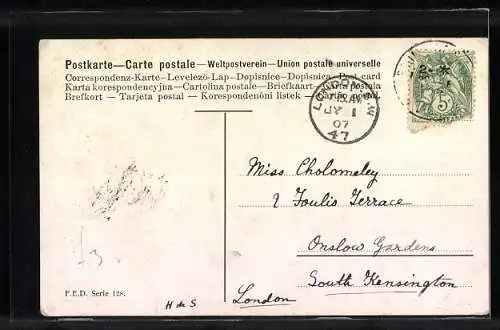 Postkarte—Carte postale—Weltpostverein—Union postale universelle
Correspondenz-Karte—Levelező-Lap—Dopisnice—Dopisnica—Post card
Karta korespondencyjna—Cartolina postale—Briefkaart—
Brefkort — Tarjeta postal — Korespondenční lístek —
LONDON
JY 1
07
47
5
Miss Cholomeley
2 Foulis Terrace
Onslow Gardens
South Kensington
London
P.E.D. Serie 128.
H de S